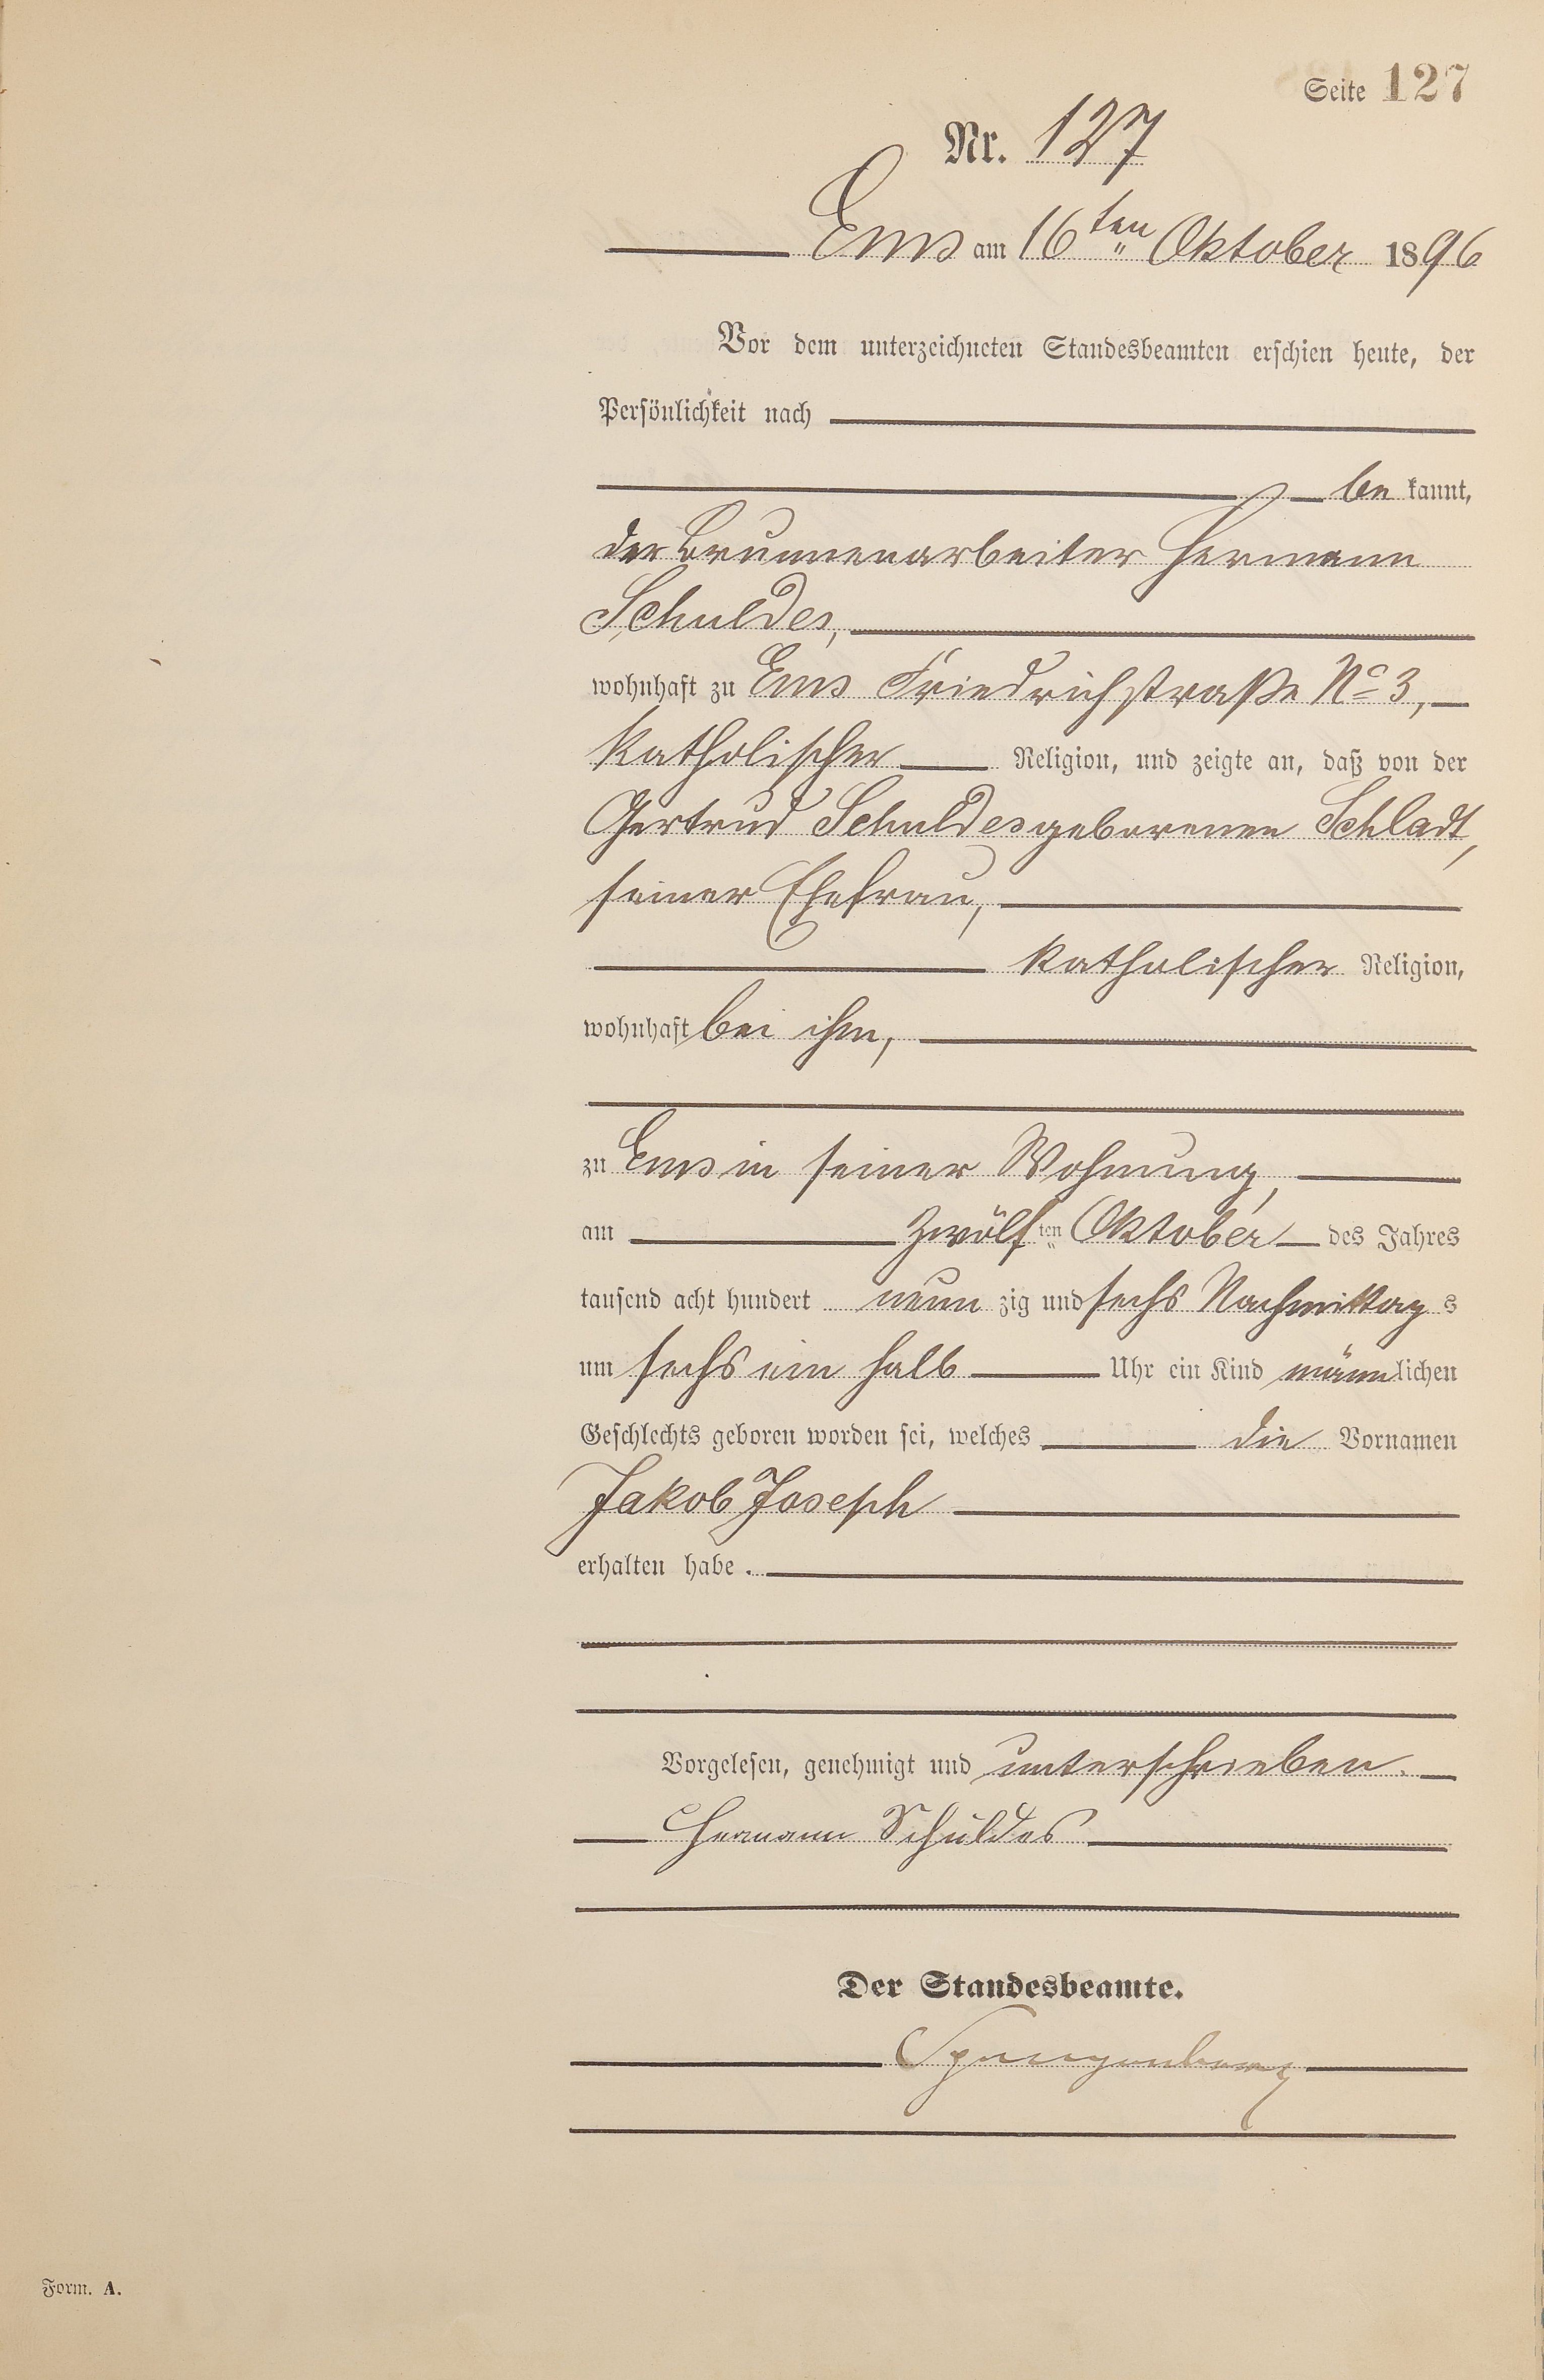 Seite 127
Nr. 127
Ems am 16ten Oktober 1896
Vor dem unterzeichneten Standesbeamten erschien heute, der
Persönlichkeit nach
be kannt,
der Brunnenarbeiter Hermann
Schuldes,
wohnhaft zu Ems Friedrichstraße No 3,
katholischer Religion, und zeigte an, daß von der
Gertrud Schuldes geborenen Schladt,
seiner Ehefrau,
katholischer Religion,
wohnhaft bei ihm,
zu Ems in seiner Wohnung,
am zwölf ten Oktober des Jahres
tausend acht hundert neun zig und sechs Nachmittag s
um sechs ein halb Uhr ein Kind männlichen
Geschlechts geboren worden sei, welches die Vornamen
Jakob Joseph
erhalten habe.
Vorgelesen, genehmigt und unterschrieben.
Hermann Schuldes
Der Standesbeamte.
Spangenberg
Form. A.